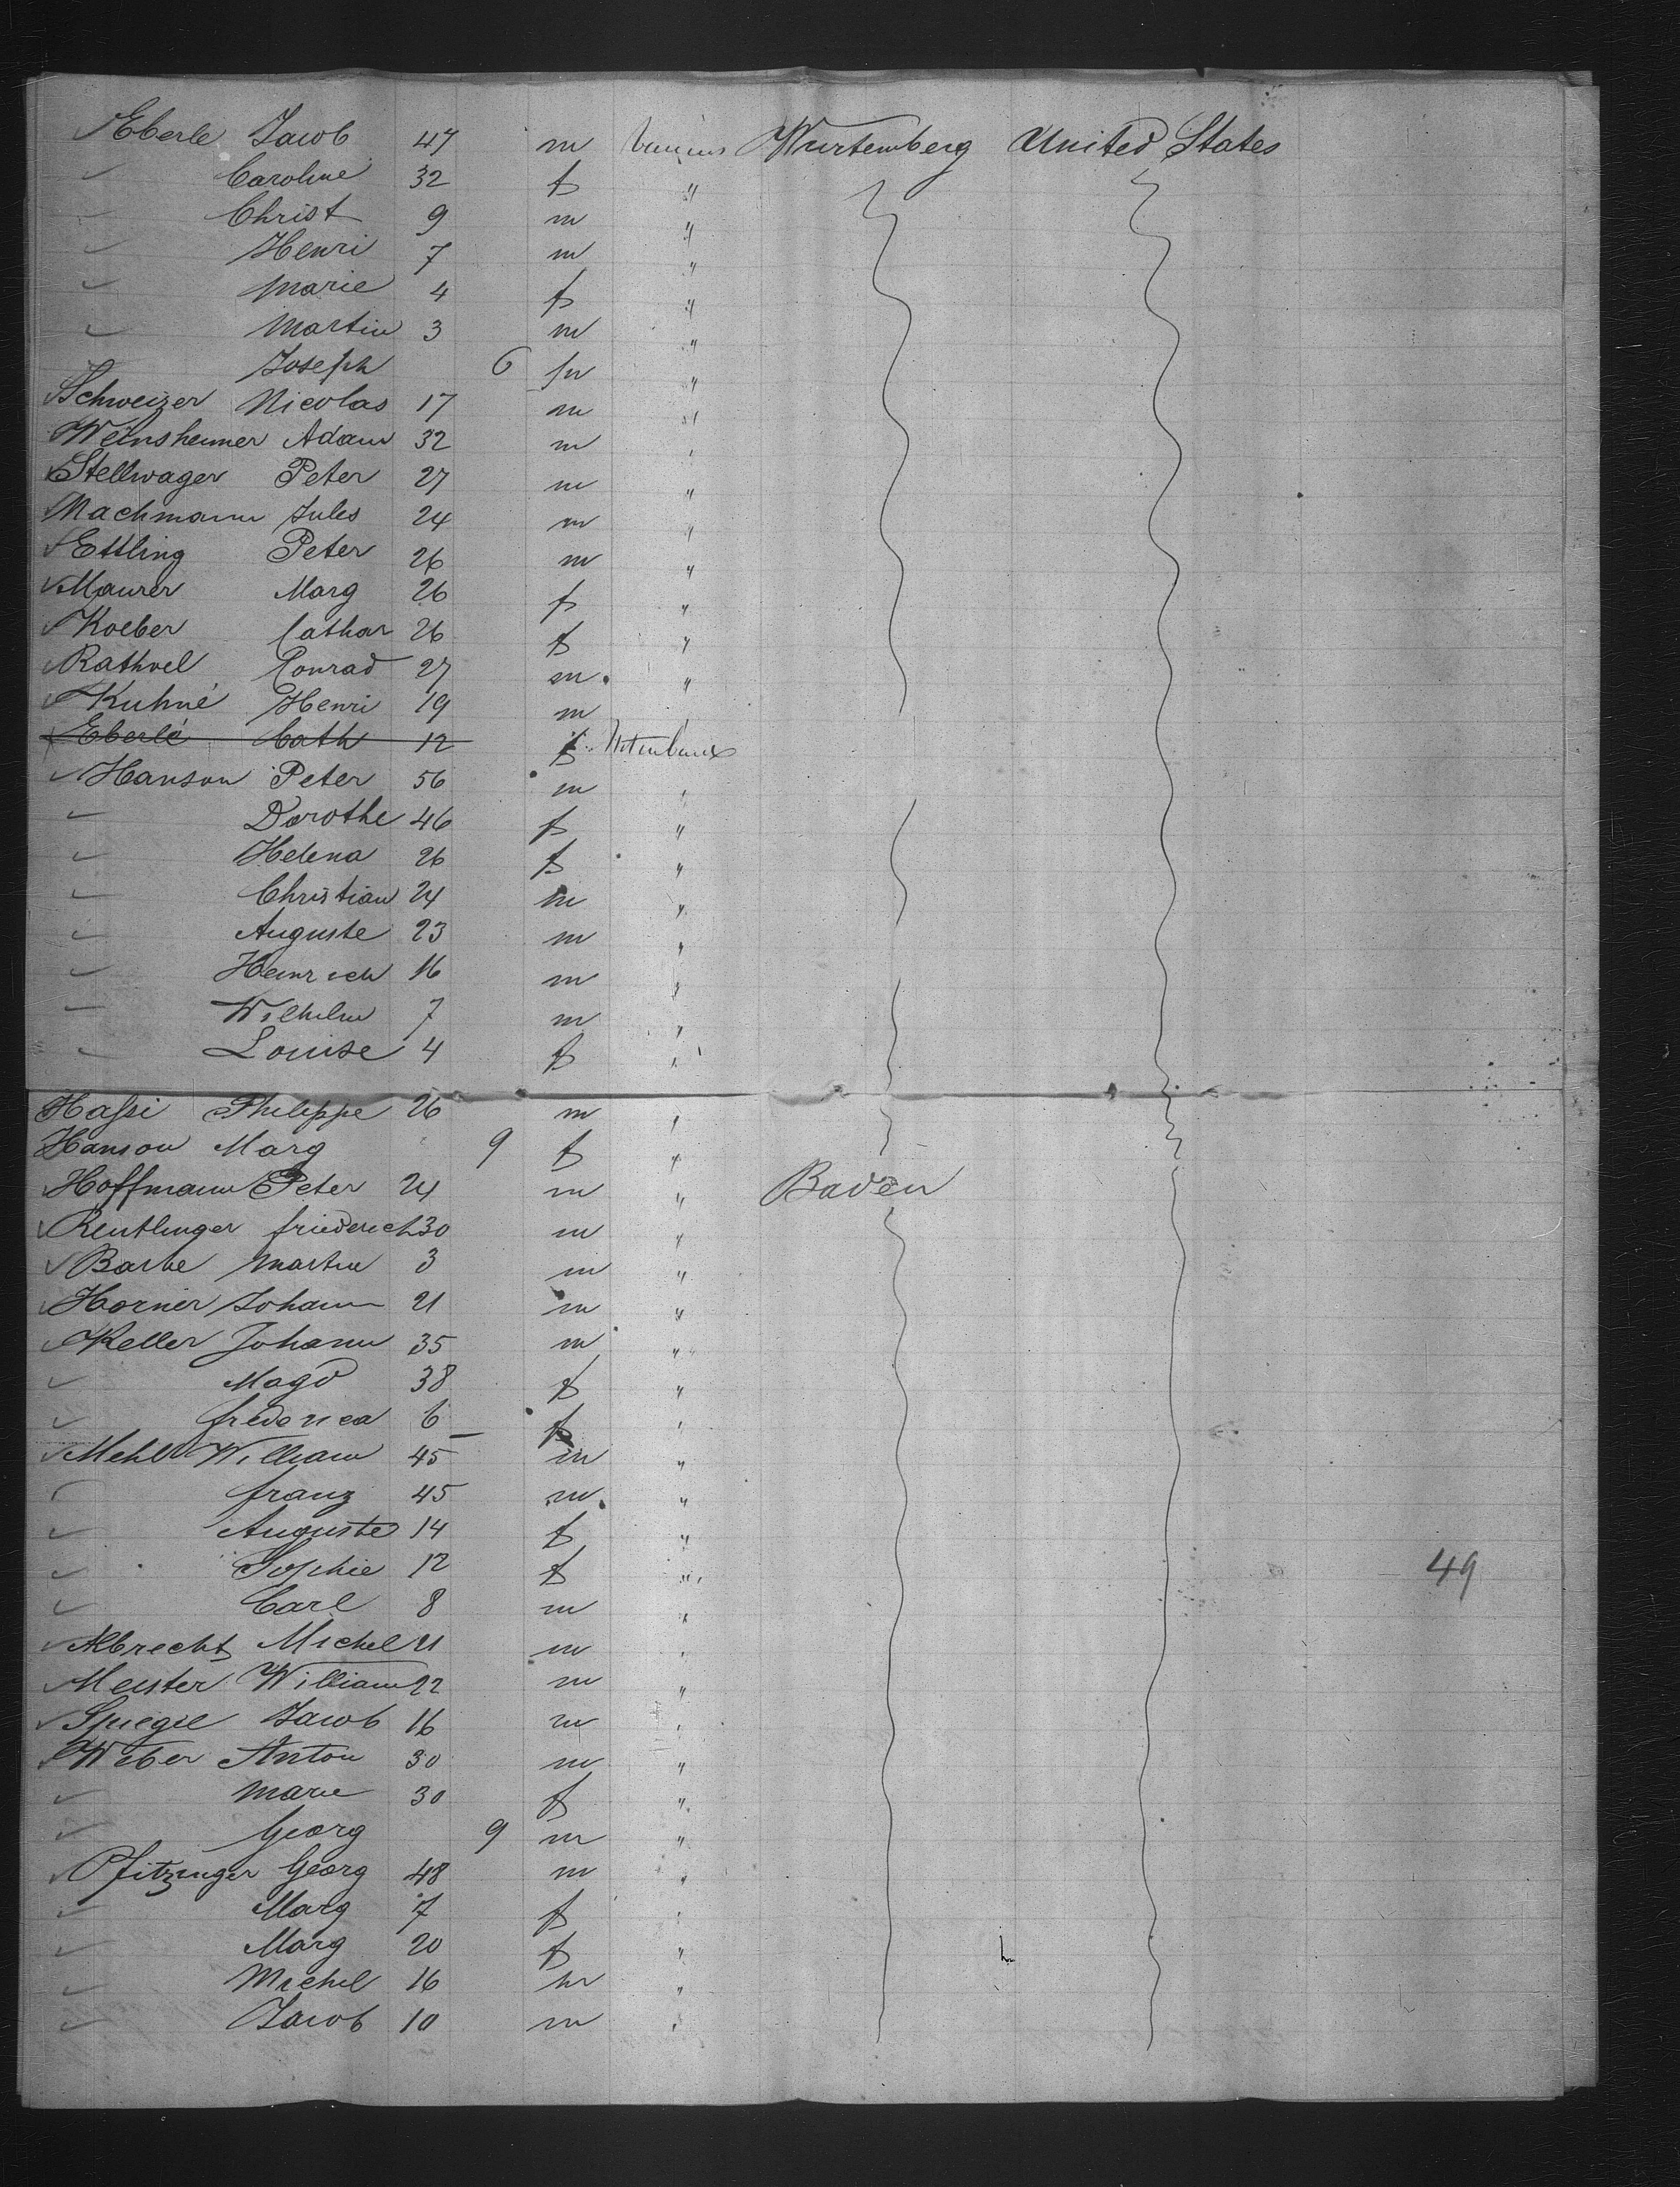 Eberle Jacob 47 m Wurtemberg United States
Caroline 32 f "
Christ 9 m "
Henri 7 m "
Marie 4 f "
Martin 3 m "
Joseph 6 m "
Schweizer Nicolas 17 m "
Weinsheimer Adam 32 m "
Stellwager Peter 27 m "
Machmann Jules 24 m "
Ettling Peter 26 m "
Maurer Marg 26 f "
Koeber Cathar 26 f "
Rathvel Conrad 27 m "
Kuhné Henri 19 m
Eberlé Cath 12 f
Hanson Peter 56 m "
Dorothe 46 f "
Helena 26 f "
Christian 24 m "
Auguste 23 m "
Heinrich 16 m "
Wilhelm 7 m "
Louise 4 f "
Hassi Philippe 26 m "
Hanson Marg 9 f "
Hoffmann Peter 24 m " Baden
Reutlinger friederich 30 m "
Barbe Martin 3 m "
Horner Johann 21 m "
Keller Johann 35 m "
Magd 38 f "
frederica 6 f "
Mehl William 45 m "
franz 45 m "
Auguste 14 f "
Sophie 12 f "
49
Carl 8 m "
Albrecht Michel 21 m "
Meister William 22 m "
Spiegel Jacob 16 m "
Weber Anton 30 m "
Marie 30 f "
Georg 9 m "
Pfitzinger Georg 48 m "
Marg 7 f "
Marg 20 f "
Michel 16 m "
Jacob 10 m "